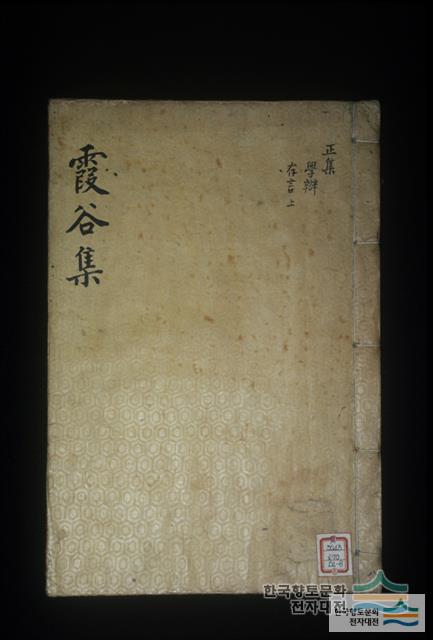 霞谷集
正集
學辯
存言上
한국향토문화
전자대전
한국향토문화
전자대전